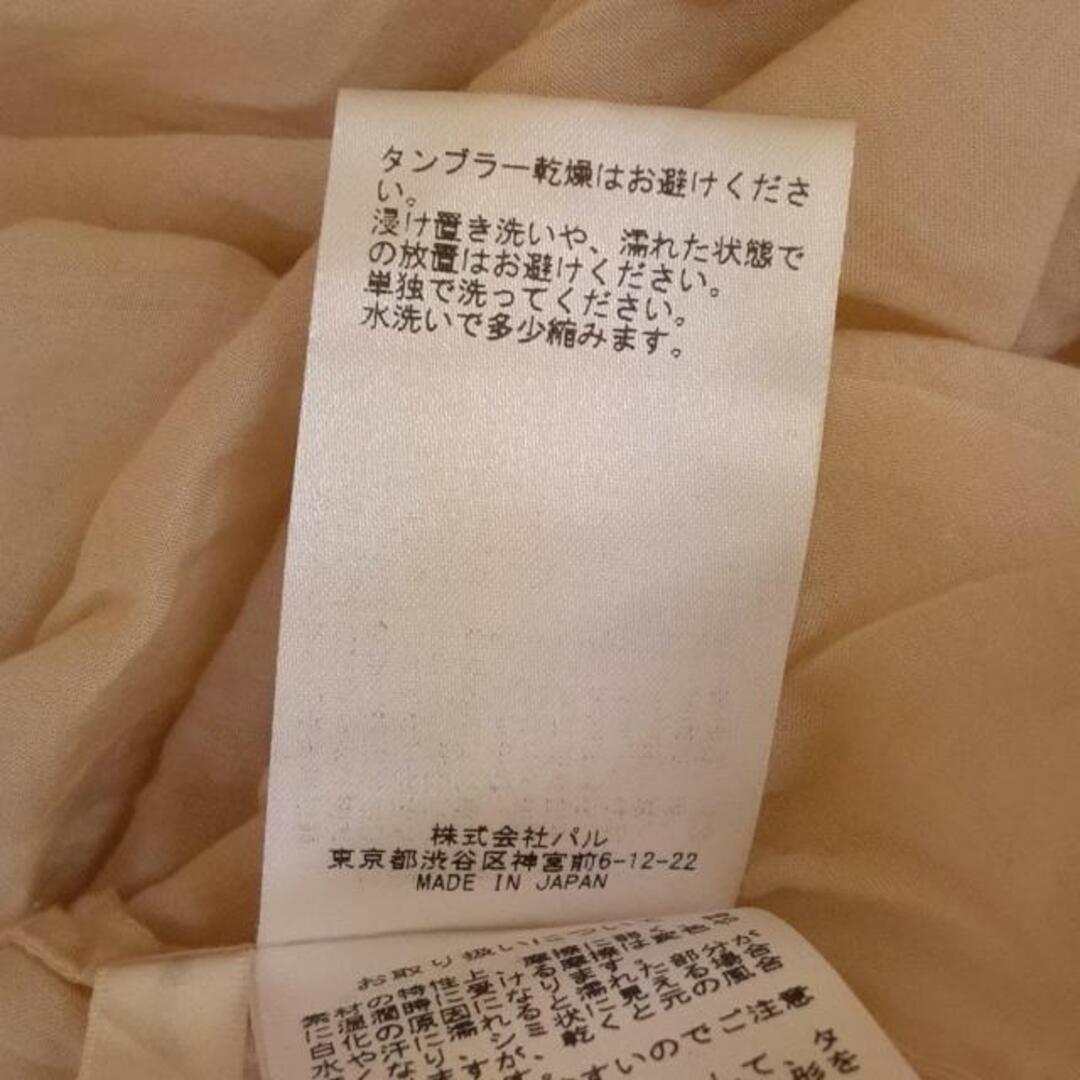 タンブラー乾燥はお避けくださ
い。
浸け置き洗いや、濡れた状態で
の放置はお避けください。
単独で洗ってください。
水洗いで多少縮みます。
株式会社パル
東京都渋谷区神宮前6-12-22
MADE IN JAPAN
お取り扱いについて
素材の特性上、摩擦に弱
に湿潤時に受ける摩擦は
白化の原因になります。
水や汗に濡れると濡れた部分が
すいのでご注意